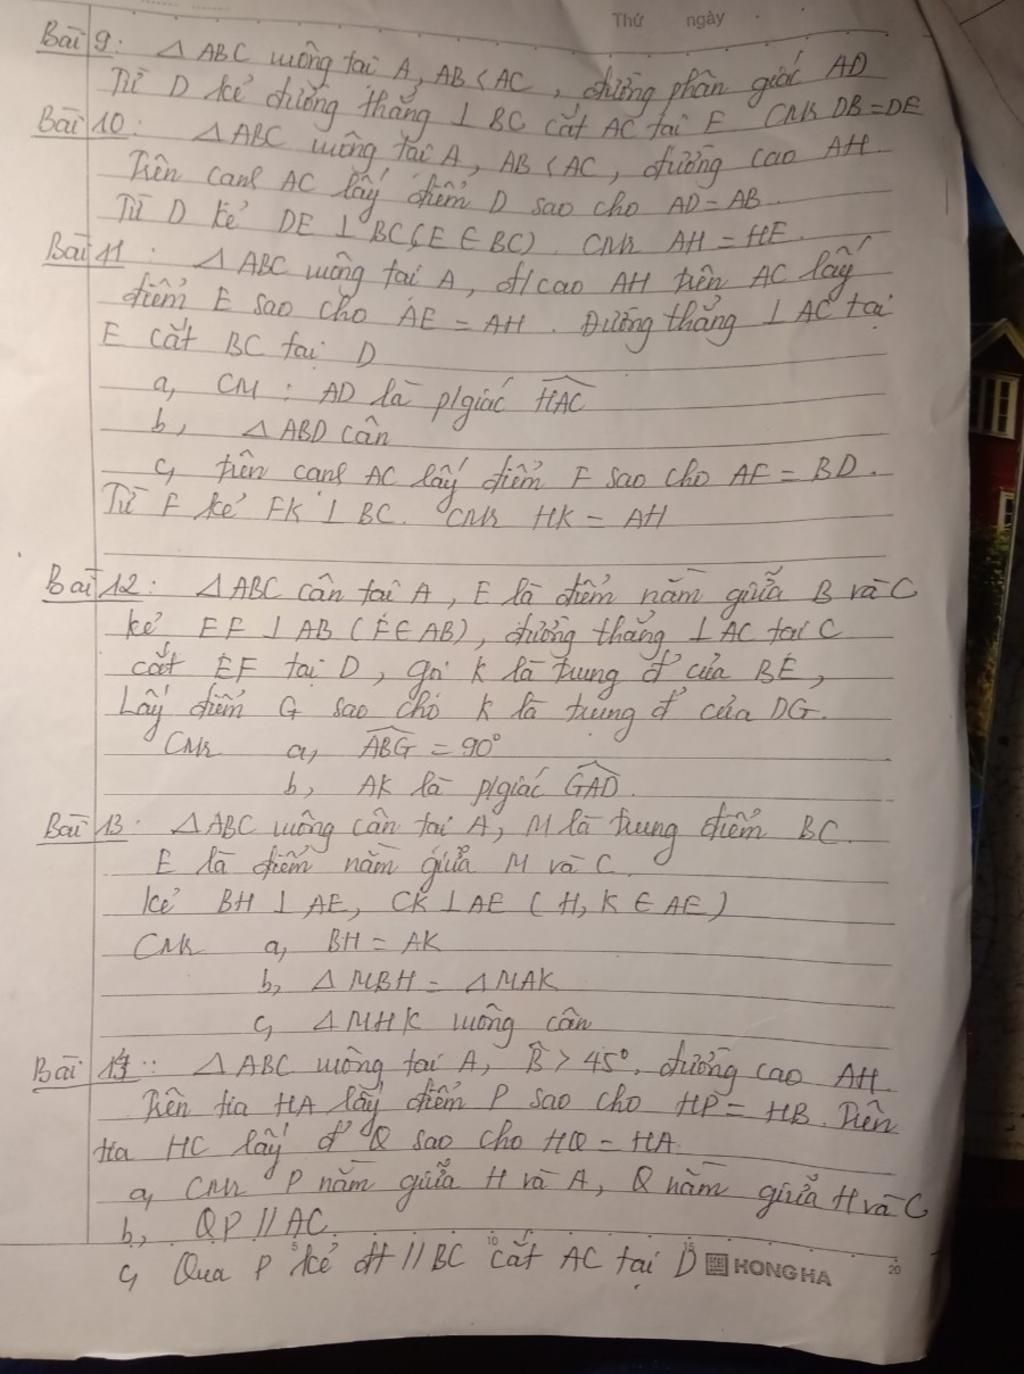 Thứ ngày
Bài 9: △ ABC vuông tại A, AB < AC, đường phân giác AD
Từ D kẻ đường thẳng ⊥ BC cắt AC tại E CMR DB = DE
Bài 10: △ ABC vuông tại A, AB < AC, đường cao AH.
Trên cạnh AC lấy điểm D sao cho AD = AB.
Từ D kẻ DE ⊥ BC (E ∈ BC). CMR AH = HE.
Bài 11: △ ABC vuông tại A, đ/cao AH trên AC lấy
điểm E sao cho AE = AH. Đường thẳng ⊥ AC tại
E cắt BC tại D
a, CM: AD là p/giác \widehat{HAC}
b, △ ABD cân
c, trên cạnh AC lấy điểm F sao cho AF = BD.
Từ F kẻ FK ⊥ BC. CMR HK = AH
Bài 12: △ ABC cân tại A, E là điểm nằm giữa B và C
kẻ EF ⊥ AB (F ∈ AB), đường thẳng ⊥ AC tại C
cắt EF tại D, gọi K là trung đ' của BE,
Lấy điểm G sao cho K là trung đ' của DG.
CMR a, \widehat{ABG} = 90°
b, AK là p/giác \widehat{GAD}.
Bài 13: △ ABC vuông cân tại A, M là trung điểm BC.
E là điểm nằm giữa M và C.
Kẻ BH ⊥ AE, CK ⊥ AE (H, K ∈ AE)
CMR a, BH = AK
b, △ MBH = △ MAK
c, △ MHK vuông cân
Bài 14: △ ABC vuông tại A, B̂ > 45°, đường cao AH.
Trên tia HA lấy điểm P sao cho HP = HB. Trên
tia HC lấy đ' Q sao cho HQ = HA.
a, CMR P nằm giữa H và A, Q nằm giữa H và C
b, QP // AC.
c, Qua P kẻ đt // BC cắt AC tại D
5 10 15 HONG HA 20